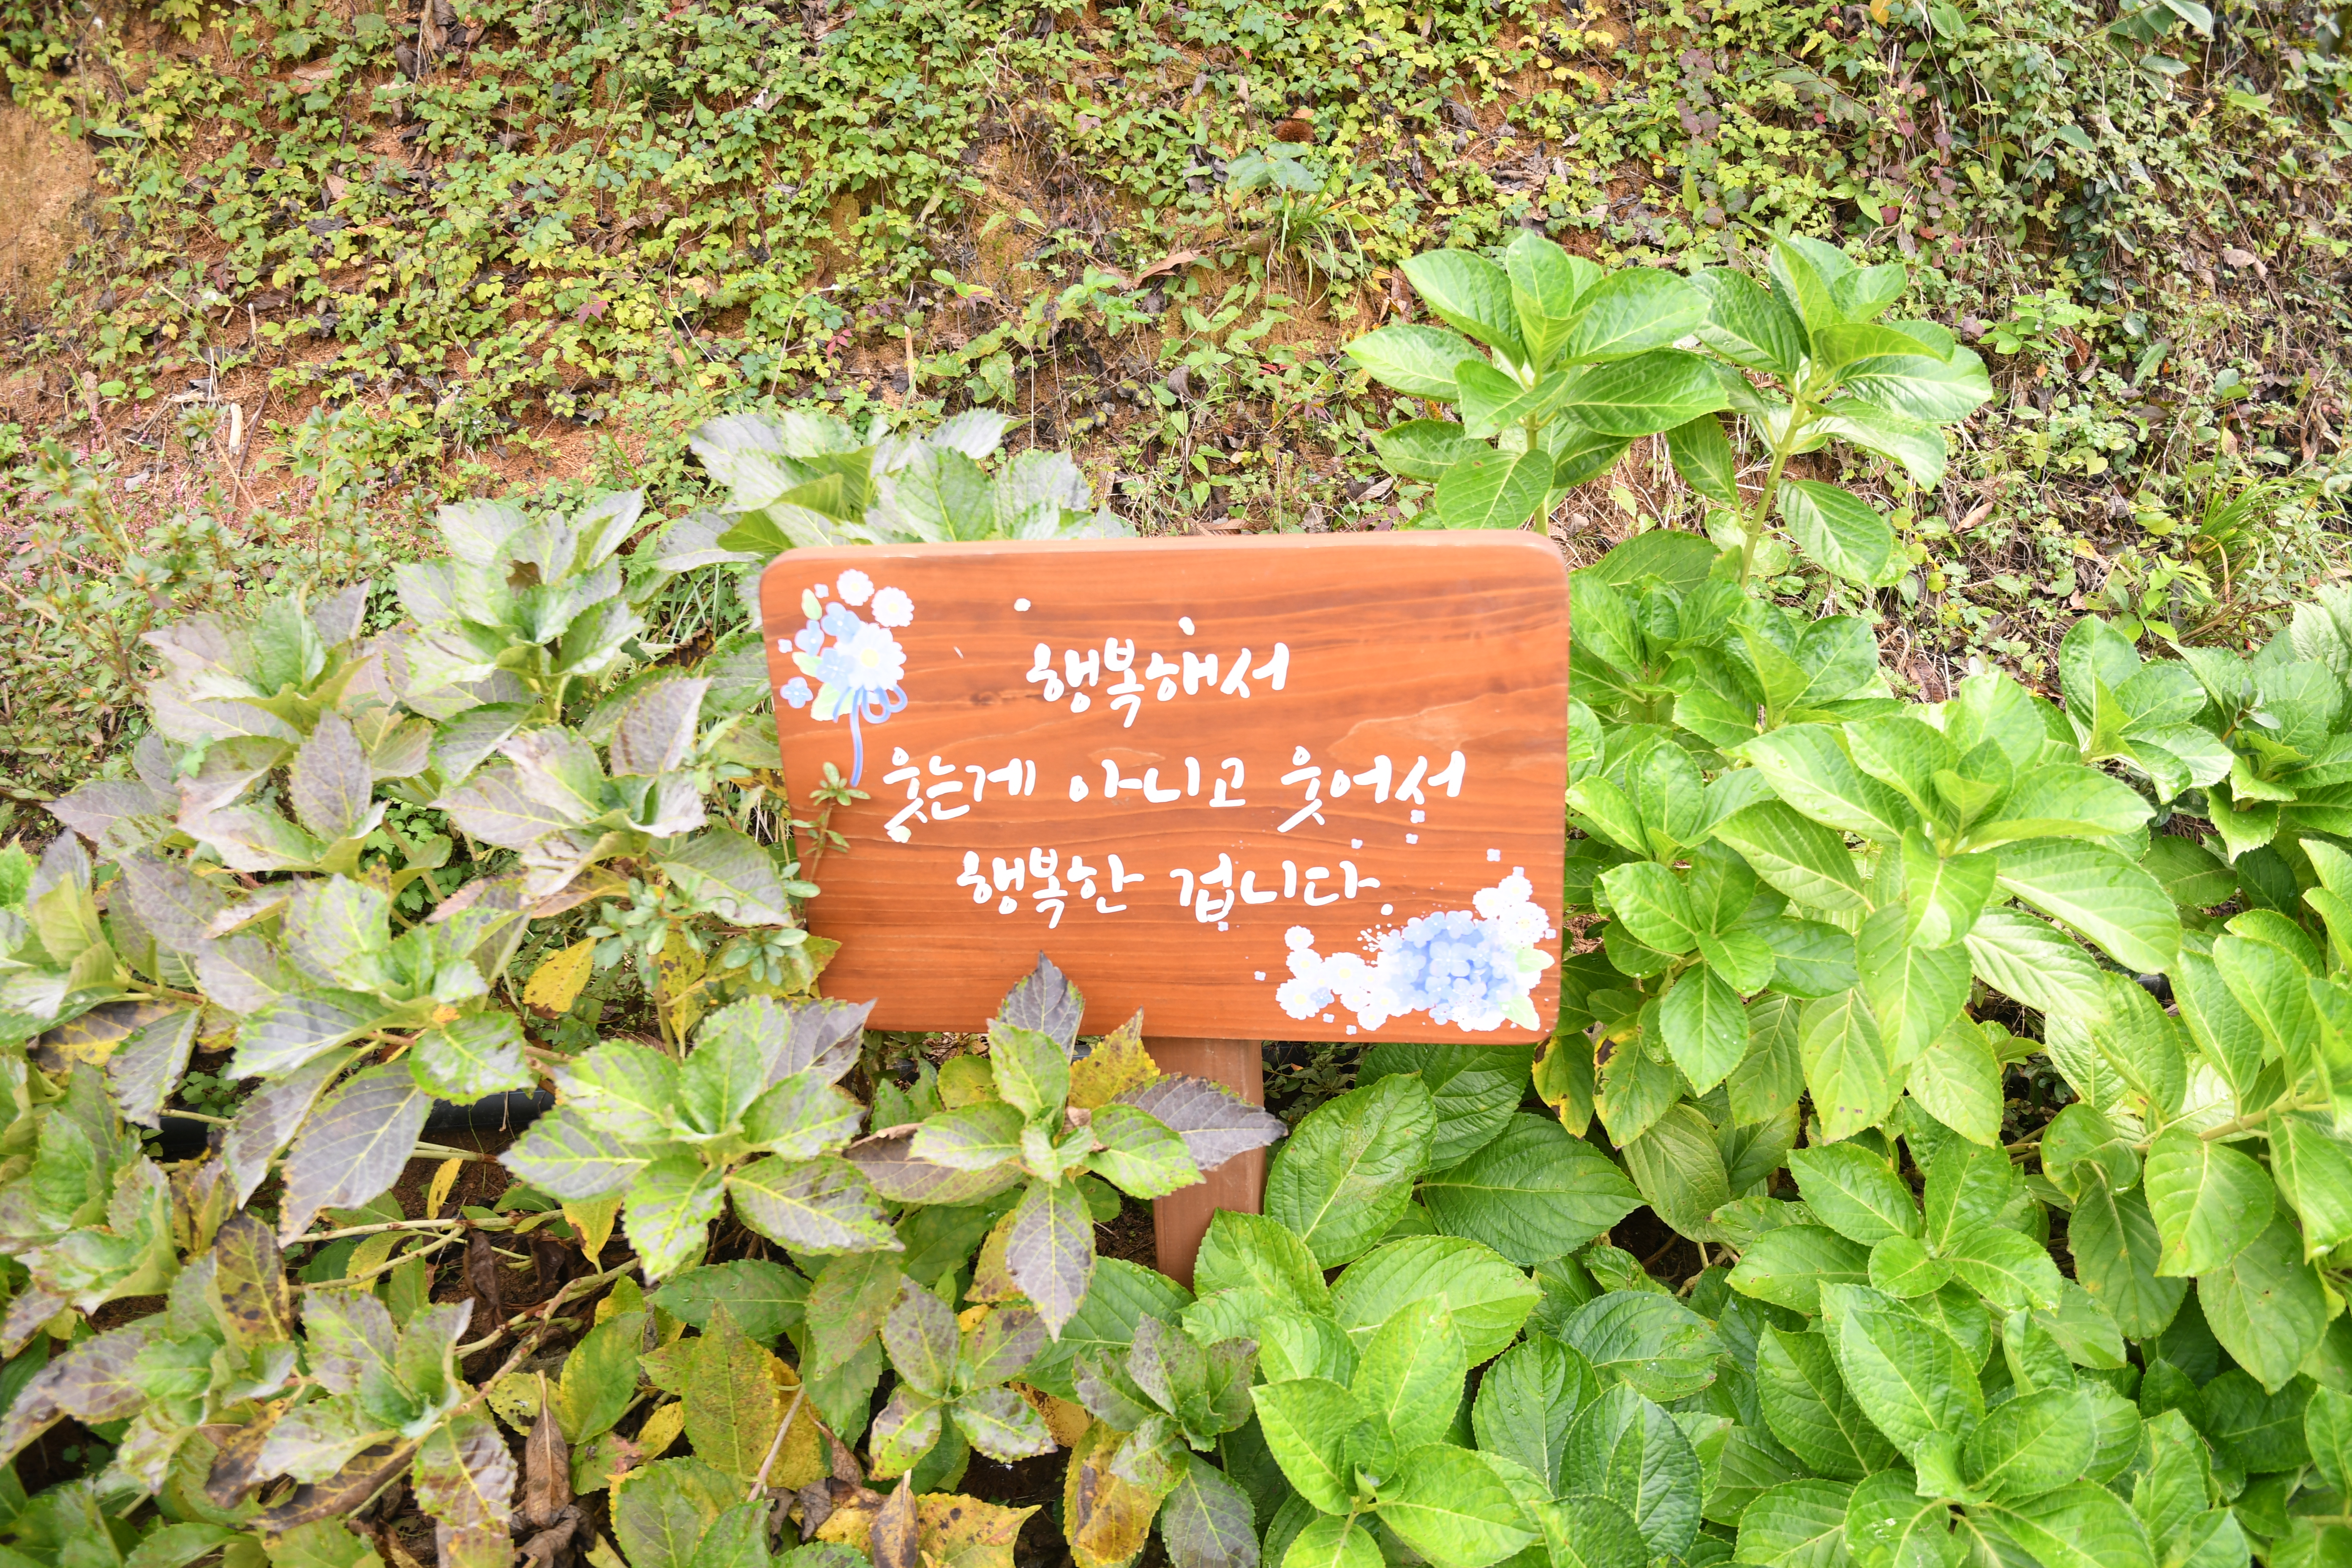 행복해서
웃는게 아니고 웃어서
행복한 겁니다.